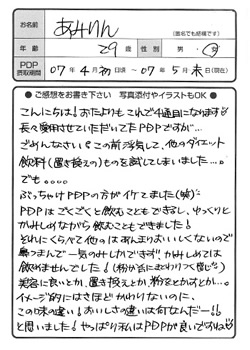 お名前 あみりん (匿名でも結構です)
年齢 29歳 性別 男・女
PDP摂取期間 07年4月初日頃〜07年5月末日(現在)
●ご感想をお書き下さい 写真添付やイラストもOK●
こんにちは!おたよりもこれで4通目になります
長々愛用させていただいてるPDPですが…
ごめんなさい。この前浮気して、他のダイエット
飲料(置き換えの)ものを試してしまいました…。
でも。。。。
ぶっちゃけPDPの方がイケてました(笑)
PDPはごくごくと飲むこともできるし、ゆっくりと
かみしめながら飲むこともできました!
それにくらべて他のはあんまりおいしくないので
鼻つまんで一気のみしかできず、かみしめては
飲めませんでした!(粉が舌にまとわりつく感じ)
美容に良いとか、置き換えとか、粉をとかすとか…。
イメージ的にはさほどかわりないのに、
この味の違い!おいしさの違いは何なんだー!!
と思いました!やっぱり私はPDPが良いですね